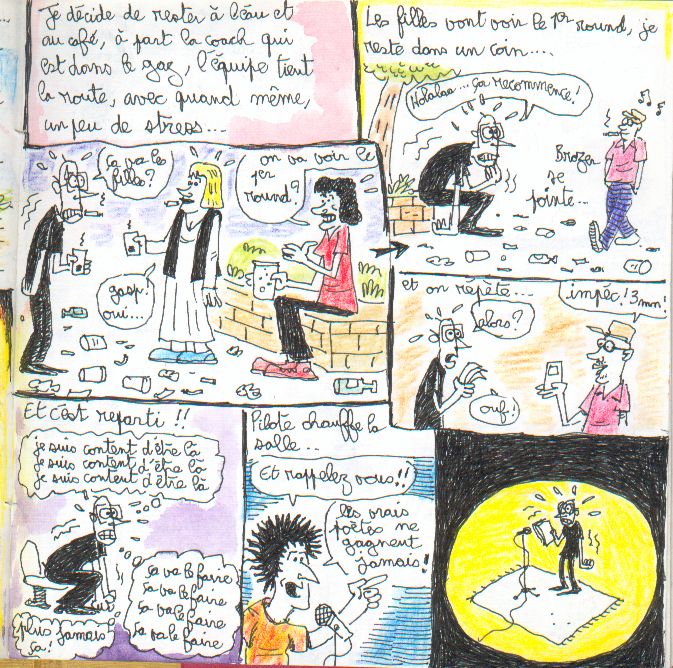 Je décide de rester à l'eau et
au café, à part la coach qui
est dans le gaz, l'équipe tient
la route, avec quand même,
un peu de stress...
ça va les
filles?
on va voir le
1er
round?
gasp!
oui...
Les filles vont voir le 1er round, je
reste dans un coin....
Holalaa... ça recommence!
Brozen
se
pointe...
et on répète...
alors?
impéc! 3mn!
ouf!
Et c'est reparti!!
je suis content d'être là
je suis content d'être là
je suis content d'être là
ça va le faire
ça va le faire
ça va le faire
ça va le faire
plus jamais
ça!
Pilote chauffe la
salle...
Et rappelez vous!!
les vrais
poètes ne
gagnent
jamais!